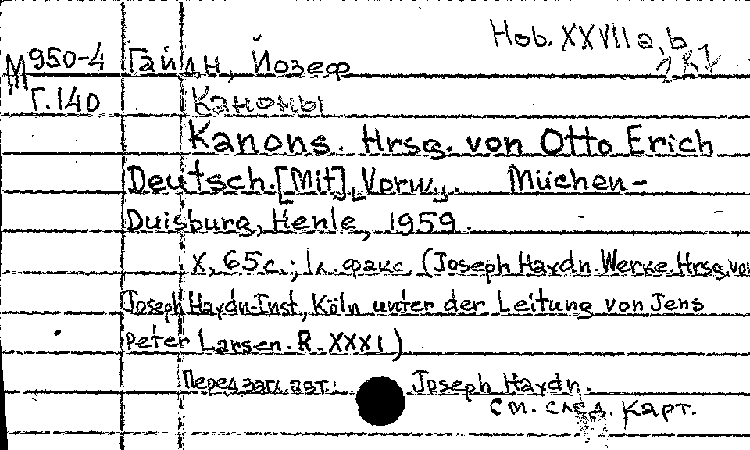 Hob. XXVII a, b
М 950-4 Гайдн, Йозеф
Г.140 Каноны
Kanons. Hrsg. von Otto Erich
Deutsch. [Mit] Vorw. Müchen-
Duisburg, Henle, 1959.
X, 65 с.; 1 л. факс. (Joseph Haydn Werke Hrsg. von
Joseph Haydn-Inst., Köln unter der Leitung von Jens
Peter Larsen. R. XXXI)
Перед загл. авт.: Joseph Haydn.
см. след. карт.